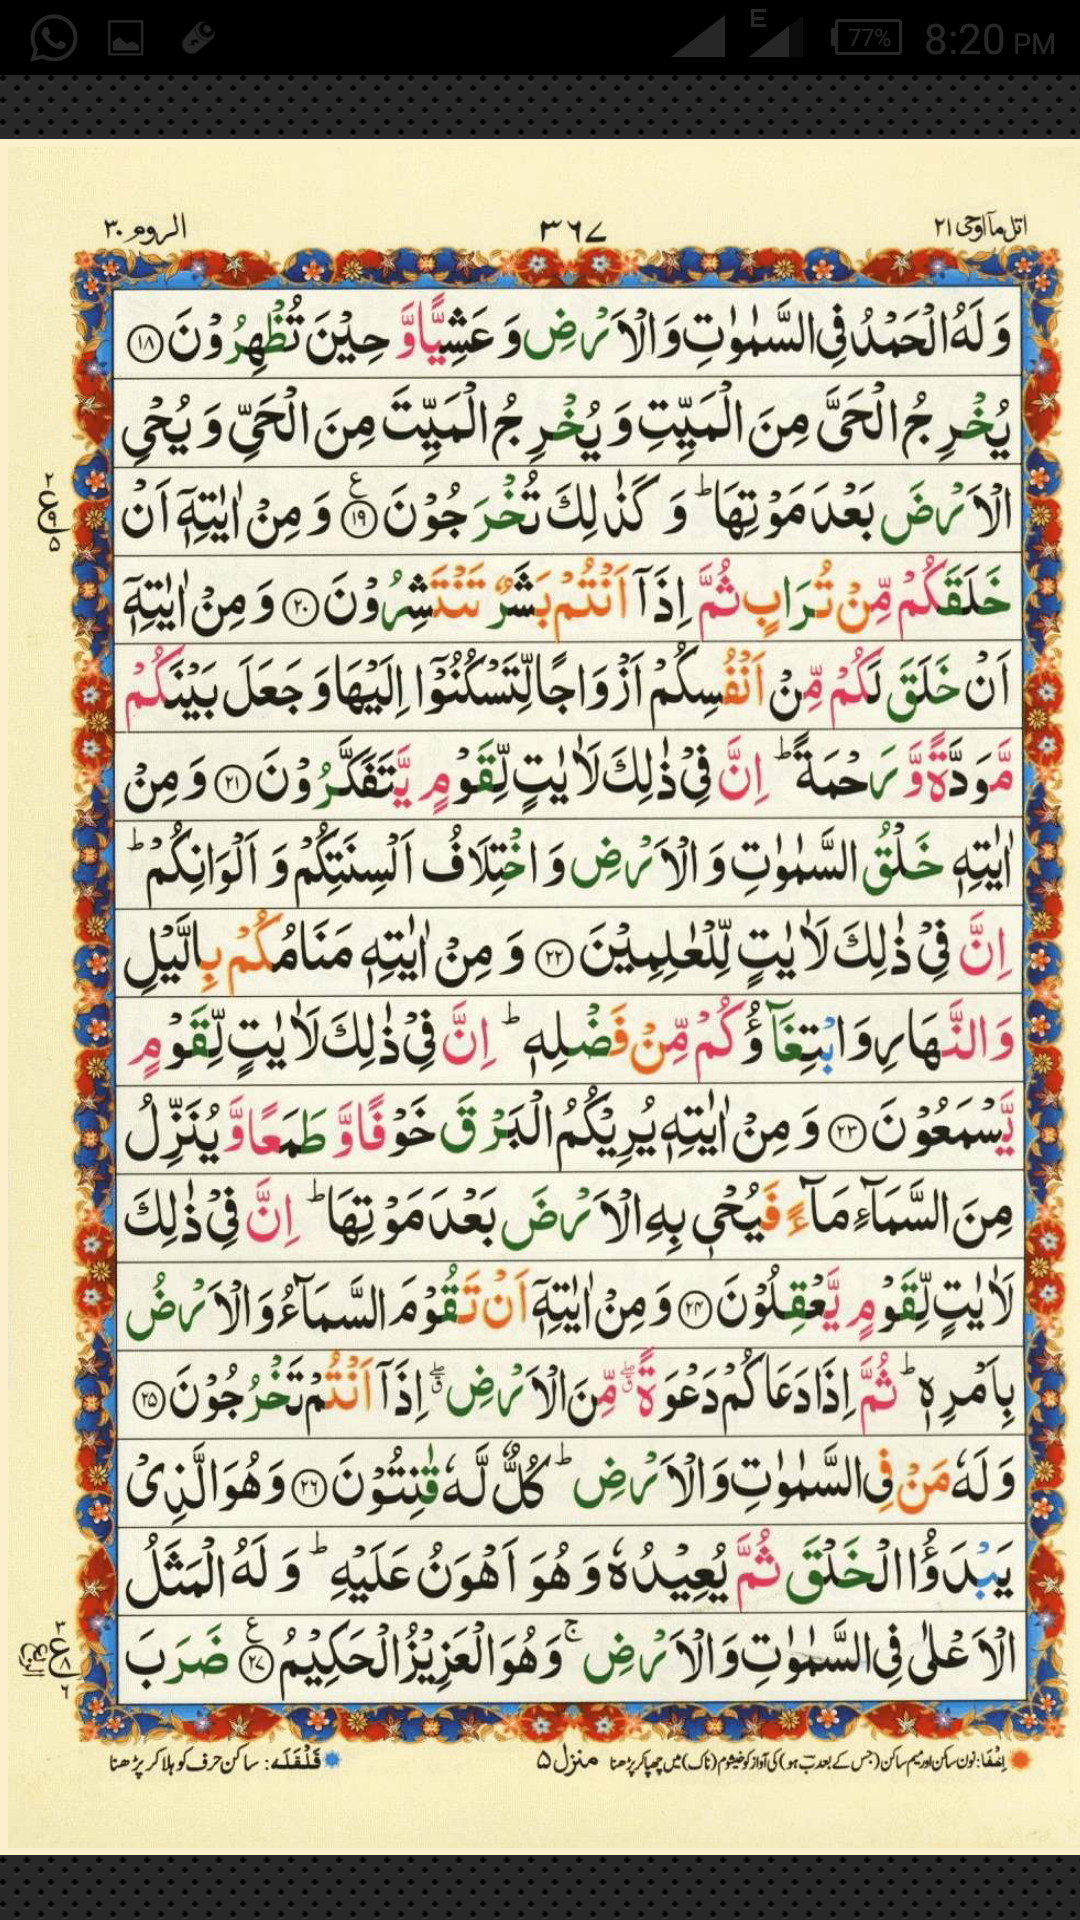 E 77% 8:20 PM
اتل ماۤ اوحی ۲۱ ۳۶۷ الروم ۳۰
وَ لَهُ الْحَمْدُ فِی السَّمٰوٰتِ وَ الْاَرْضِ وَ عَشِیًّا وَّ حِیْنَ تُظْهِرُوْنَ ۱۸
یُخْرِ جُ الْحَیَّ مِنَ الْمَیِّتِ وَ یُخْرِ جُ الْمَیِّتَ مِنَ الْحَیِّ وَ یُحْیِ
الْاَرْضَ بَعْدَ مَوْتِهَا ؕ وَ كَذٰلِكَ تُخْرَجُوْنَ ۱۹ ع وَ مِنْ اٰیٰتِهٖۤ اَنْ
۲ ع ۹ ۵
خَلَقَكُمْ مِّنْ تُرَابٍ ثُمَّ اِذَاۤ اَنْتُمْ بَشَرٌ تَنْتَشِرُوْنَ ۲۰ وَ مِنْ اٰیٰتِهٖۤ
اَنْ خَلَقَ لَكُمْ مِّنْ اَنْفُسِكُمْ اَزْوَاجًا لِّتَسْكُنُوْۤا اِلَیْهَا وَ جَعَلَ بَیْنَكُمْ
مَّوَدَّةً وَّ رَحْمَةً ؕ اِنَّ فِیْ ذٰلِكَ لَاٰیٰتٍ لِّقَوْمٍ یَّتَفَكَّرُوْنَ ۲۱ وَ مِنْ
اٰیٰتِهٖ خَلْقُ السَّمٰوٰتِ وَ الْاَرْضِ وَ اخْتِلَافُ اَلْسِنَتِكُمْ وَ اَلْوَانِكُمْ ؕ
اِنَّ فِیْ ذٰلِكَ لَاٰیٰتٍ لِّلْعٰلِمِیْنَ ۲۲ وَ مِنْ اٰیٰتِهٖ مَنَامُكُمْ بِالَّیْلِ
وَ النَّهَارِ وَ ابْتِغَآؤُكُمْ مِّنْ فَضْلِهٖ ؕ اِنَّ فِیْ ذٰلِكَ لَاٰیٰتٍ لِّقَوْمٍ
یَّسْمَعُوْنَ ۲۳ وَ مِنْ اٰیٰتِهٖ یُرِیْكُمُ الْبَرْقَ خَوْفًا وَّ طَمَعًا وَّ یُنَزِّلُ
مِنَ السَّمَآءِ مَآءً فَیُحْیٖ بِهِ الْاَرْضَ بَعْدَ مَوْتِهَا ؕ اِنَّ فِیْ ذٰلِكَ
لَاٰیٰتٍ لِّقَوْمٍ یَّعْقِلُوْنَ ۲۴ وَ مِنْ اٰیٰتِهٖۤ اَنْ تَقُوْمَ السَّمَآءُ وَ الْاَرْضُ
بِاَمْرِهٖ ؕ ثُمَّ اِذَا دَعَاكُمْ دَعْوَةً ۖۗ مِّنَ الْاَرْضِ ۖۗ اِذَاۤ اَنْتُمْ تَخْرُجُوْنَ ۲۵
وَ لَهٗ مَنْ فِی السَّمٰوٰتِ وَ الْاَرْضِ ؕ كُلٌّ لَّهٗ قٰنِتُوْنَ ۲۶ وَ هُوَ الَّذِیْ
یَبْدَؤُا الْخَلْقَ ثُمَّ یُعِیْدُهٗ وَ هُوَ اَهْوَنُ عَلَیْهِ ؕ وَ لَهُ الْمَثَلُ
الْاَعْلٰی فِی السَّمٰوٰتِ وَ الْاَرْضِ ۚ وَ هُوَ الْعَزِیْزُ الْحَكِیْمُ ۲۷ ع ضَرَبَ
۳ ع ۸ ۶
اِخْفَا: نون ساکن اور میم ساکن (جس کے بعد ب ہو) کی آواز کو خیشوم (ناک) میں چھپا کر پڑھنا منزل ۵ قَلْقَلَہ: ساکن حرف کو ہلا کر پڑھنا